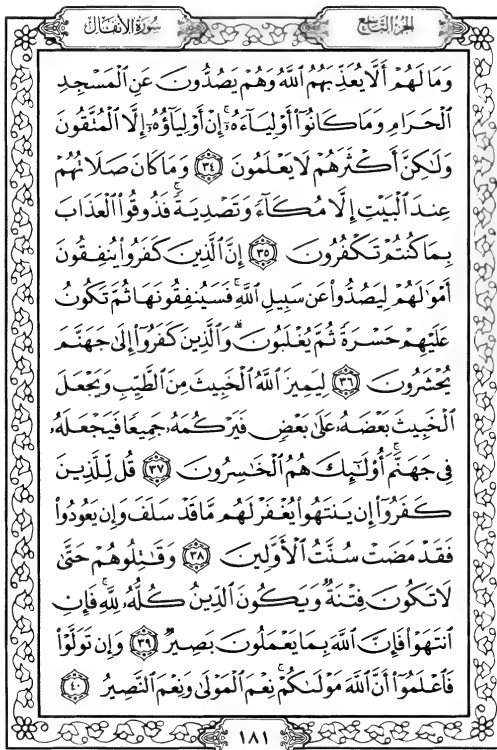 سُورَةُ الأَنفَالِ
الجُزْءُ التَّاسِعُ
وَمَا لَهُمْ أَلَّا يُعَذِّبَهُمُ ٱللَّهُ وَهُمْ يَصُدُّونَ عَنِ ٱلْمَسْجِدِ
ٱلْحَرَامِ وَمَا كَانُوٓا۟ أَوْلِيَآءَهُۥٓ ۚ إِنْ أَوْلِيَآؤُهُۥٓ إِلَّا ٱلْمُتَّقُونَ
وَلَٰكِنَّ أَكْثَرَهُمْ لَا يَعْلَمُونَ ﴿٣٤﴾ وَمَا كَانَ صَلَاتُهُمْ
عِندَ ٱلْبَيْتِ إِلَّا مُكَآءً وَتَصْدِيَةً ۚ فَذُوقُوا۟ ٱلْعَذَابَ
بِمَا كُنتُمْ تَكْفُرُونَ ﴿٣٥﴾ إِنَّ ٱلَّذِينَ كَفَرُوا۟ يُنفِقُونَ
أَمْوَٰلَهُمْ لِيَصُدُّوا۟ عَن سَبِيلِ ٱللَّهِ ۚ فَسَيُنفِقُونَهَا ثُمَّ تَكُونُ
عَلَيْهِمْ حَسْرَةً ثُمَّ يُغْلَبُونَ ۗ وَٱلَّذِينَ كَفَرُوٓا۟ إِلَىٰ جَهَنَّمَ
يُحْشَرُونَ ﴿٣٦﴾ لِيَمِيزَ ٱللَّهُ ٱلْخَبِيثَ مِنَ ٱلطَّيِّبِ وَيَجْعَلَ
ٱلْخَبِيثَ بَعْضَهُۥ عَلَىٰ بَعْضٍ فَيَرْكُمَهُۥ جَمِيعًا فَيَجْعَلَهُۥ
فِى جَهَنَّمَ ۚ أُو۟لَٰٓئِكَ هُمُ ٱلْخَٰسِرُونَ ﴿٣٧﴾ قُل لِّلَّذِينَ
كَفَرُوٓا۟ إِن يَنتَهُوا۟ يُغْفَرْ لَهُم مَّا قَدْ سَلَفَ وَإِن يَعُودُوا۟
فَقَدْ مَضَتْ سُنَّتُ ٱلْأَوَّلِينَ ﴿٣٨﴾ وَقَٰتِلُوهُمْ حَتَّىٰ
لَا تَكُونَ فِتْنَةٌ وَيَكُونَ ٱلدِّينُ كُلُّهُۥ لِلَّهِ ۚ فَإِنِ
ٱنتَهَوْا۟ فَإِنَّ ٱللَّهَ بِمَا يَعْمَلُونَ بَصِيرٌ ﴿٣٩﴾ وَإِن تَوَلَّوْا۟
فَٱعْلَمُوٓا۟ أَنَّ ٱللَّهَ مَوْلَىٰكُمْ ۚ نِعْمَ ٱلْمَوْلَىٰ وَنِعْمَ ٱلنَّصِيرُ ﴿٤٠﴾
١٨١